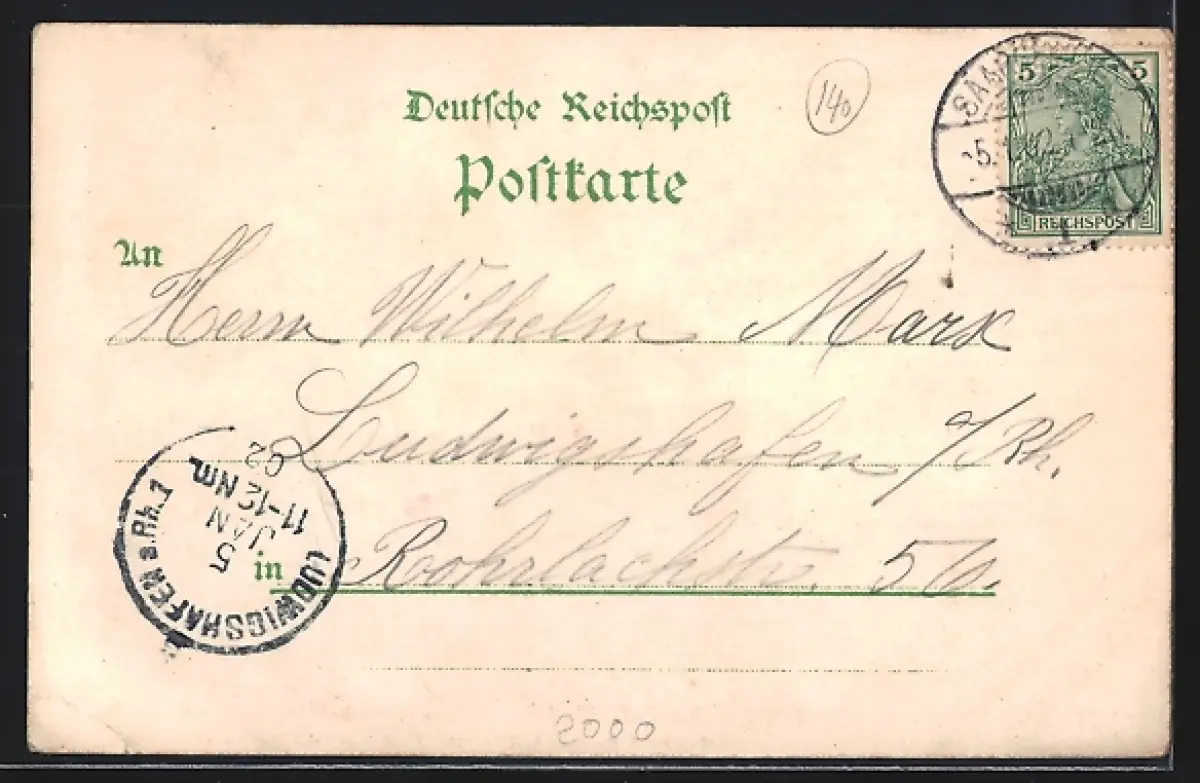 140
5 5
REICHSPOST
Deutsche Reichspost
Postkarte
An
Herrn Wilhelm Marx
Ludwigshafen a/Rh.
in Roohrlachstr. 56.
LUDWIGSHAFEN a. Rh. 1
5
JAN
11-12 Nm.
02
2000